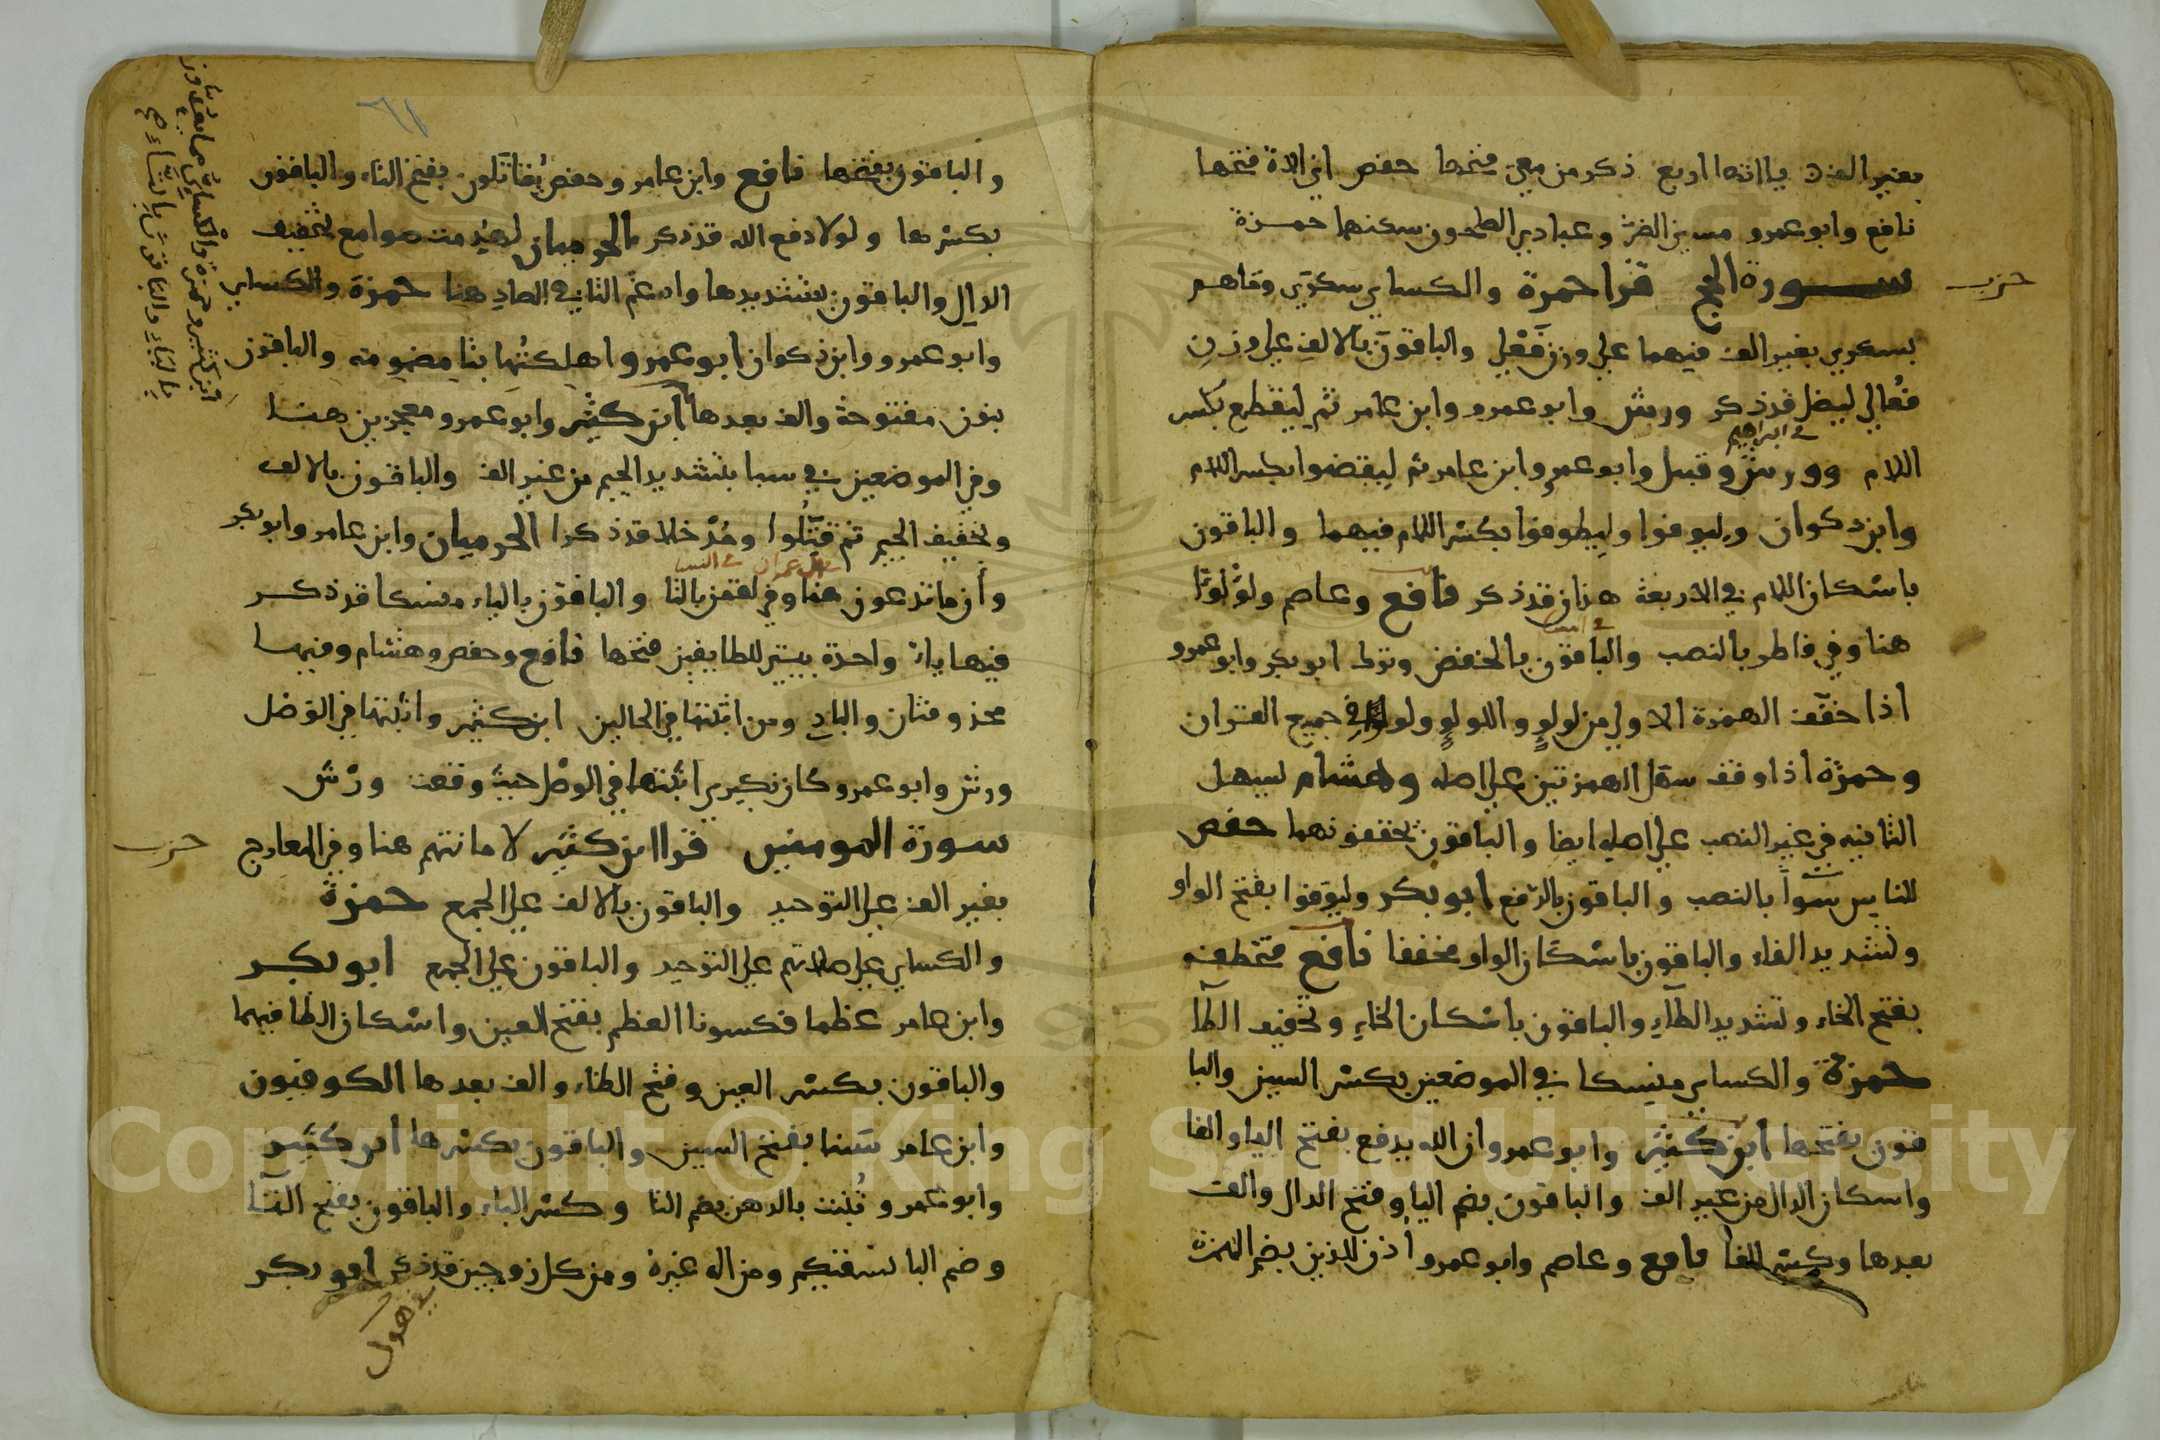 بغير الف ياآتها اربع ذكر من معي فتحها حفص اني الاة فتحها
نافع وابو عمرو مسني الضر وعبادي الصلحون سكنهما حمزة
حزب
ســورة الحج قرا حمزة والكساي سكرى وماهم
بسكرى بغير الف فيهما على وزن فَعْلى والباقون بالالف على وزن
فُعالى ليضل قد ذكر ورش وابو عمرو وابن عامر ثم ليقطع بكسر
في ابراهيم
اللام وورش وقنبل وابو عمرو وابن عامر ثم ليقضوا بكسر اللام
وابن ذكوان وليوفوا وليطوفوا بكسر اللام فيهما والباقون
باسكان اللام في الاربعة هذان قد ذكر نافع وعاصم ولؤلؤا
في النسا
هنا وفي فاطر بالنصب والباقون بالخفض وترك ابو بكر وابو عمرو
اذا خفف الهمزة الاولى من لولو واللولو ولولوا في جميع القران
وحمزة اذا وقف سهل الهمزتين على اصله وهشام يسهل
الثانيه في غير النصب على اصله ايضا والباقون يحققونهما حفص
للناس سوآً بالنصب والباقون بالرفع ابو بكر وليوفوا بفتح الواو
وتشديد الفاء والباقون باسكان الواو مخففا نافع فتخطفه
بفتح الخاء وتشديد الطآء والباقون باسكان الخاء وتخفيف الطآ
حمزة والكساي منسكا في الموضعين بكسر السين والبا
قون بفتحها ابن كثير وابو عمرو ان الله يدفع بفتح اليا والفا
واسكان الدال من غير الف والباقون بضم اليا وفتح الدال والف
بعدها وكسر الفا نافع وعاصم وابو عمرو اذن للذين بضم الهمزة
والباقون بفتحها نافع وابن عامر وحفص يُقاتَلون بفتح التاء والباقون
بكسرها ولولا دفع الله قد ذكر الحرميان لهدمت صوامع بتخفيف
الدال والباقون بتشديدها وادغم التا في الصاد هنا حمزة والكساي
وابو عمرو وابن ذكوان ابو عمرو اهلكتُها بتا مضمومه والباقون
بنون مفتوحة والف بعدها ابن كثير وابو عمرو معجزين هنا
وفي الموضعين في سبا بتشديد الجيم من غير الف والباقون بالالف
وتخفيف الجيم ثم قتّلوا ومُدْخلا قد ذكرا الحرميان وابن عامر وابو بكر
في ال عمران في النسا
وأن ما تدعون هنا وفي لقمن بالتا والباقون بالياء منسكا قد ذكر
فيها ياء واحدة بيتي للطايفين فتحها نافع وحفص وهشام وفيها
محذوفتان والباد ومن اثبتها في الحالين ابن كثير واثبتها في الوصل
ورش وابو عمرو كان نكيري اثبتها في الوصل حيث وقعت ورش
حزب
سورة المومنين قرا ابن كثير لامانتهم هنا وفي المعارج
بغير الف على التوحيد والباقون بالالف على الجمع حمزة
والكساي على صلاتهم على التوحيد والباقون على الجمع ابو بكر
وابن عامر عظما فكسونا العظم بفتح العين واسكان الظا فيهما
والباقون بكسر العين وفتح الظاء والف بعدها الكوفيون
وابن عامر سَينا بفتح السين والباقون بكسرها ابن كثير
وابو عمرو تُنبت بالدهن بضم التا وكسر الباء والباقون بفتح التآ
وضم البا نسقيكم ومن اله غيره ومن كل زوجين قد ذكر ابو بكر